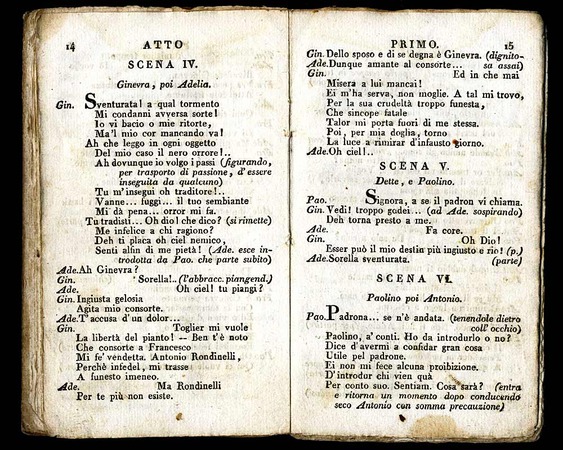 14
ATTO
SCENA IV.
Ginevra, poi Adelia.
Gin. Sventurata! a qual tormento
Mi condanni avversa sorte!
Io vi bacio o mie ritorte,
Ma'l mio cor mancando va!
Ah che leggo in ogni oggetto
Del mio caso il nero orrore!..
Ah dovunque io volgo i passi (figurando,
per trasporto di passione, d'essere
inseguita da qualcuno)
Tu m'insegui oh traditore!..
Vanne... fuggi... il tuo sembiante
Mi dà pena... orror mi fa.
Tu tradisti... Oh dio! che dico? (si rimette)
Me infelice a chi ragiono?
Deh ti placa oh ciel nemico,
Senti alfin di me pietà! (Ade. esce in-
trodotta da Pao. che parte subito)
Ade. Ah Ginevra?
Gin. Sorella!.. (l'abbracc. piangend.)
Ade. Oh ciel! tu piangi?
Gin. Ingiusta gelosia
Agita mio consorte.
Ade. T'accusa d'un dolor...
Gin. Toglier mi vuole
La libertà del pianto! -- Ben t'è noto
Che consorte a Francesco
Mi fe' vendetta. Antonio Rondinelli,
Perchè infedel, mi trasse
A funesto imeneo.
Ade. Ma Rondinelli
Per te più non esiste.
PRIMO.
15
Gin. Dello sposo e di se degna è Ginevra. (dignito-
Ade. Dunque amante al consorte... sa assai)
Gin. Ed in che mai
Misera a lui mancai!
Ei m'ha serva, non moglie. A tal mi trovo,
Per la sua crudeltà troppo funesta,
Che sincope fatale
Talor mi porta fuori di me stessa.
Poi, per mia doglia, torno
La luce a rimirar d'infausto giorno.
Ade. Oh ciel!..
SCENA V.
Dette, e Paolino.
Pao. Signora, a se il padron vi chiama.
Gin. Vedi! troppo godei... (ad Ade. sospirando)
Deh torna presto a me.
Ade. Fa core.
Gin. Oh Dio!
Esser può il mio destin più ingiusto e rio! (p.)
Ade. Sorella sventurata. (parte)
SCENA VI.
Paolino poi Antonio.
Pao. Padrona... se n'è andata. (tenendole dietro
coll'occhio)
Paolino, a' conti. Ho da introdurlo o no?
Dice d'avermi a confidar gran cosa
Utile pel padrone.
Ei non mi fece alcuna proibizione.
D'introdur chi vien quà
Per conto suo. Sentiam. Cosa sarà? (entra
e ritorna un momento dopo conducendo
seco Antonio con somma precauzione)